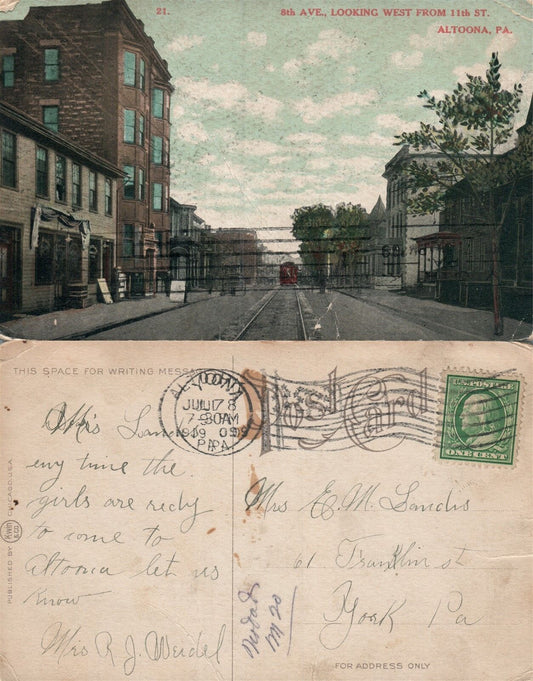 21.
8th AVE., LOOKING WEST FROM 11th ST.
ALTOONA, PA.
THIS SPACE FOR WRITING MESSA
ALTOONA
JUL 17 8
7-30AM
1909
PA.
Post Card
U.S. POSTAGE
ONE CENT
Mrs Landis
eny time the
girls are redy
to come to
Altoona let us
know
Mrs R. J. Weidel
PUBLISHED BY
CHICAGO, U.S.A.
Mrs E. M. Landis
61 Franklin st
York Pa
M 20
FOR ADDRESS ONLY